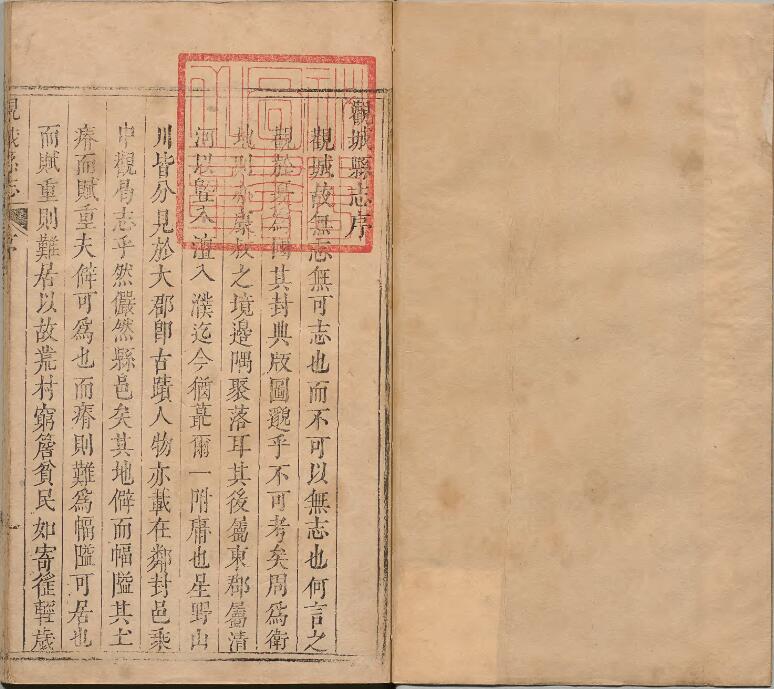 觀城縣志序
觀城故無志無可志也而不可以無志也何言之
觀於夏爲國其封典版圖邈乎不可考矣周爲衛
地則亦蕞爾之境邊隅聚落耳其後隷東郡屬清
河以曁入澶入濮迄今猶蕞爾一附庸也星野山
川皆分見於大郡卽古蹟人物亦載在鄰封邑乘
中觀曷志乎然儼然縣邑矣其地僻而幅隘其土
瘠而賦重夫僻可爲也而瘠則難爲幅隘可居也
而賦重則難居以故荒村窮簷貧民如寄徃輕歲
觀城縣志 序